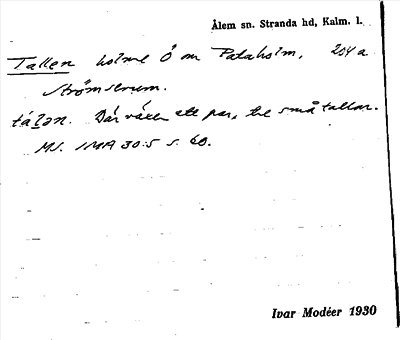 Ålem sn. Stranda hd, Kalm. l.
Tallen holme Ö om Pataholm, 204 a
Strömsrum.
tálən. Där växer ett par, tre små tallar.
MS. IMA 30:5 s. 60.
Ivar Modéer 1930